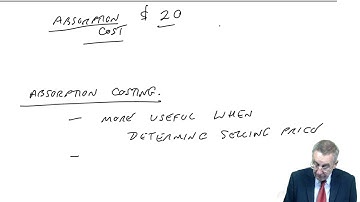 ABSORPTION $ 20
COST
ABSORPTION COSTING.
— MORE USEFUL WHEN
DETERMING SELLING PRICE
—